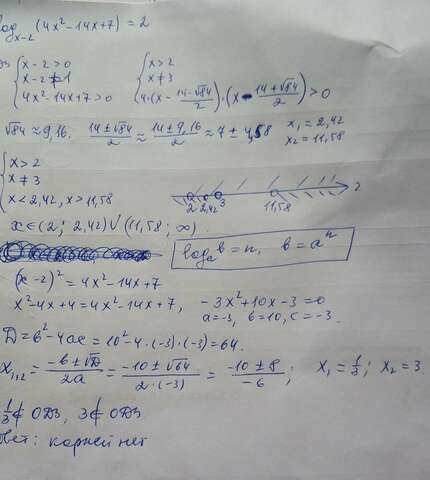 log_{x-2} (4x²-14x+7) = 2
{ x-2>0
x-2≠1
4x²-14x+7>0
{ x>2
x≠3
4·(x - (14-√84)/2)·(x - (14+√84)/2) > 0
√84 ≈ 9,16; (14±√84)/2 ≈ (14±9,16)/2 ≈ 7 ± 4,58 x₁=2,42 x₂=11,58
{ x>2
x≠3
x<2,42, x>11,58
2 2,42 3 11,58 2
x∈(2; 2,42)∪(11,58; ∞)
log_a b=n, b=aⁿ
(x-2)² = 4x²-14x+7
x²-4x+4=4x²-14x+7, -3x²+10x-3=0
a=-3, b=10, c=-3.
D=b²-4ac=10²-4·(-3)·(-3)=64.
x₁,₂ = (-b±√D)/2a = (-10±√64)/(2·(-3)) = (-10±8)/(-6); x₁=1/3; x₂=3.
1/3 ∉ ОДЗ, 3∉ ОДЗ
вет: корней нет